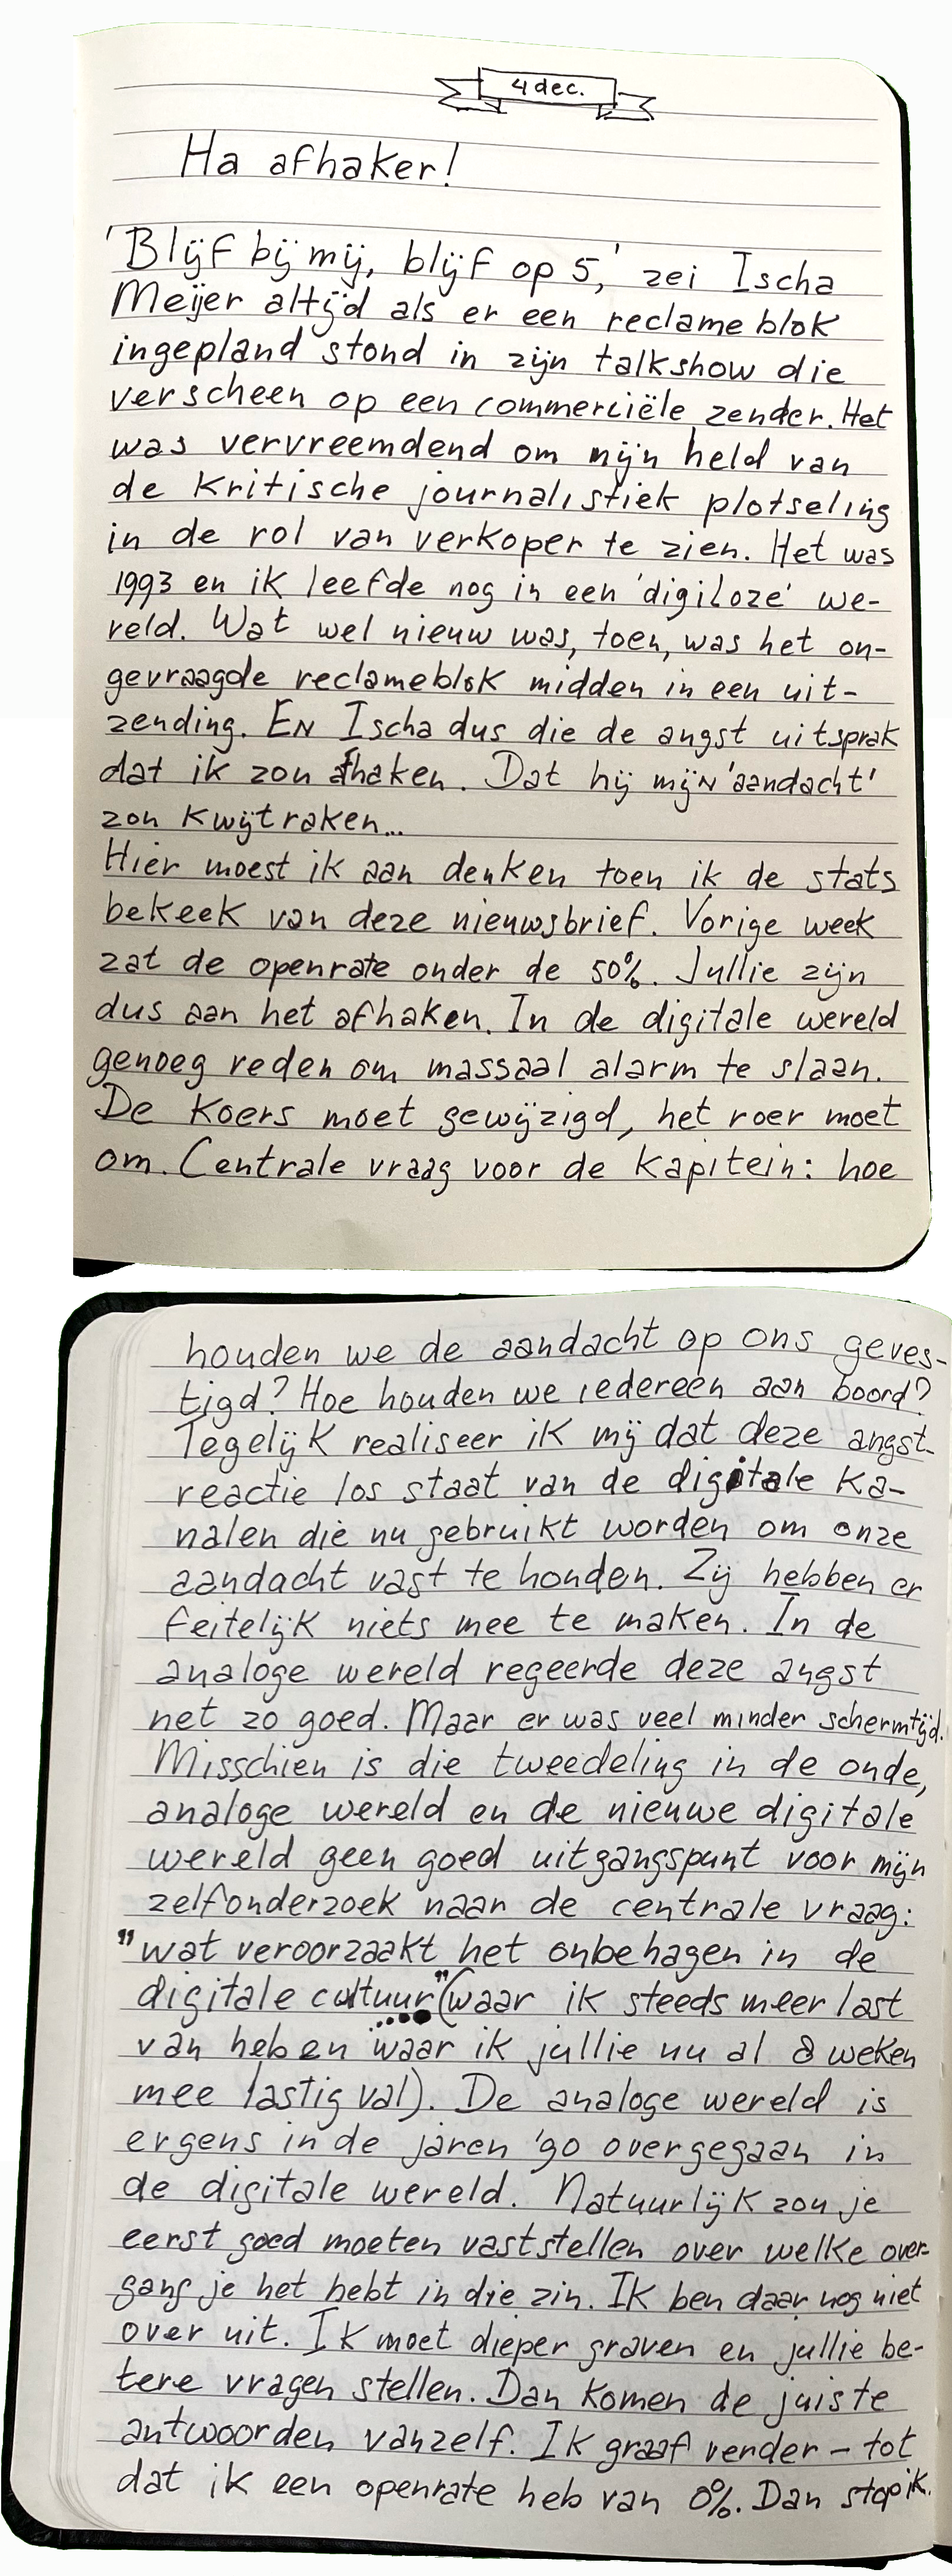 4 dec.
Ha afhaker!
'Blijf bij mij, blijf op 5,' zei Ischa
Meijer altijd als er een reclameblok
ingepland stond in zijn talkshow die
verscheen op een commerciële zender. Het
was vervreemdend om mijn held van
de kritische journalistiek plotseling
in de rol van verkoper te zien. Het was
1993 en ik leefde nog in een 'digiloze' we-
reld. Wat wel nieuw was, toen, was het on-
gevraagde reclameblok midden in een uit-
zending. EN Ischa dus die de angst uitsprak
dat ik zou afhaken. Dat hij mijn 'aandacht'
zou kwijtraken...
Hier moest ik aan denken toen ik de stats
bekeek van deze nieuwsbrief. Vorige week
zat de openrate onder de 50%. Jullie zijn
dus aan het afhaken. In de digitale wereld
genoeg reden om massaal alarm te slaan.
De koers moet gewijzigd, het roer moet
om. Centrale vraag voor de kapitein: hoe
houden we de aandacht op ons geves-
tigd? Hoe houden we iedereen aan boord?
Tegelijk realiseer ik mij dat deze angst-
reactie los staat van de digitale ka-
nalen die nu gebruikt worden om onze
aandacht vast te houden. Zij hebben er
feitelijk niets mee te maken. In de
analoge wereld regeerde deze angst
net zo goed. Maar er was veel minder schermtijd.
Misschien is die tweedeling in de oude,
analoge wereld en de nieuwe digitale
wereld geen goed uitgangspunt voor mijn
zelfonderzoek naar de centrale vraag:
"wat veroorzaakt het onbehagen in de
digitale cultuur" (waar ik steeds meer last
van heb en waar ik jullie nu al 8 weken
mee lastig val). De analoge wereld is
ergens in de jaren '90 overgegaan in
de digitale wereld. Natuurlijk zou je
eerst goed moeten vaststellen over welke over-
gang je het hebt in die zin. Ik ben daar nog niet
over uit. Ik moet dieper graven en jullie be-
tere vragen stellen. Dan komen de juiste
antwoorden vanzelf. Ik graaf verder – tot
dat ik een openrate heb van 0%. Dan stop ik.